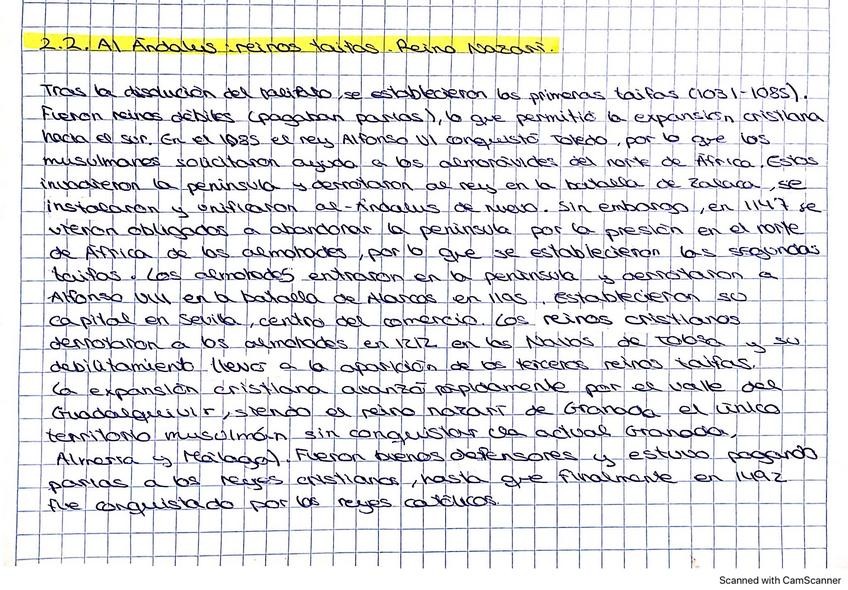 2.2. Al Ándalus: reinos taifas. Reino Nazarí.
Tras la disolución del califato, se establecieron los primeras taifas (1031-1085).
Fueron reinos débiles (pagaban parias), lo que permitió la expansión cristiana
hacia el sur. En el 1085 el rey Alfonso VI conquistó Toledo, por lo que los
musulmanes solicitaron ayuda a los almorávides del norte de África. Estos
invadieron la península y derrotaron al rey en la batalla de Zalaca, se
instalaron y unificaron al-Ándalus de nuevo. Sin embargo, en 1147 se
vieron obligados a abandonar la península por la presión en el norte
de África de los almohades, por lo que se establecieron las segundas
taifas. Los almohades entraron en la península y derrotaron a
Alfonso VIII en la batalla de Alarcos en 1195, establecieron su
capital en Sevilla, centro del comercio. Los reinos cristianos
derrotaron a los almohades en 1212 en las Navas de Tolosa y su
debilitamiento llevó a la aparición de los terceros reinos taifas.
La expansión cristiana avanzó rápidamente por el valle del
Guadalquivir, siendo el reino nazarí de Granada el único
territorio musulmán sin conquistar (la actual Granada,
Almería y Málaga). Fueron buenos defensores y estuvo pagando
parias a los reyes cristianos, hasta que finalmente en 1492
fue conquistado por los reyes católicos.
Scanned with CamScanner